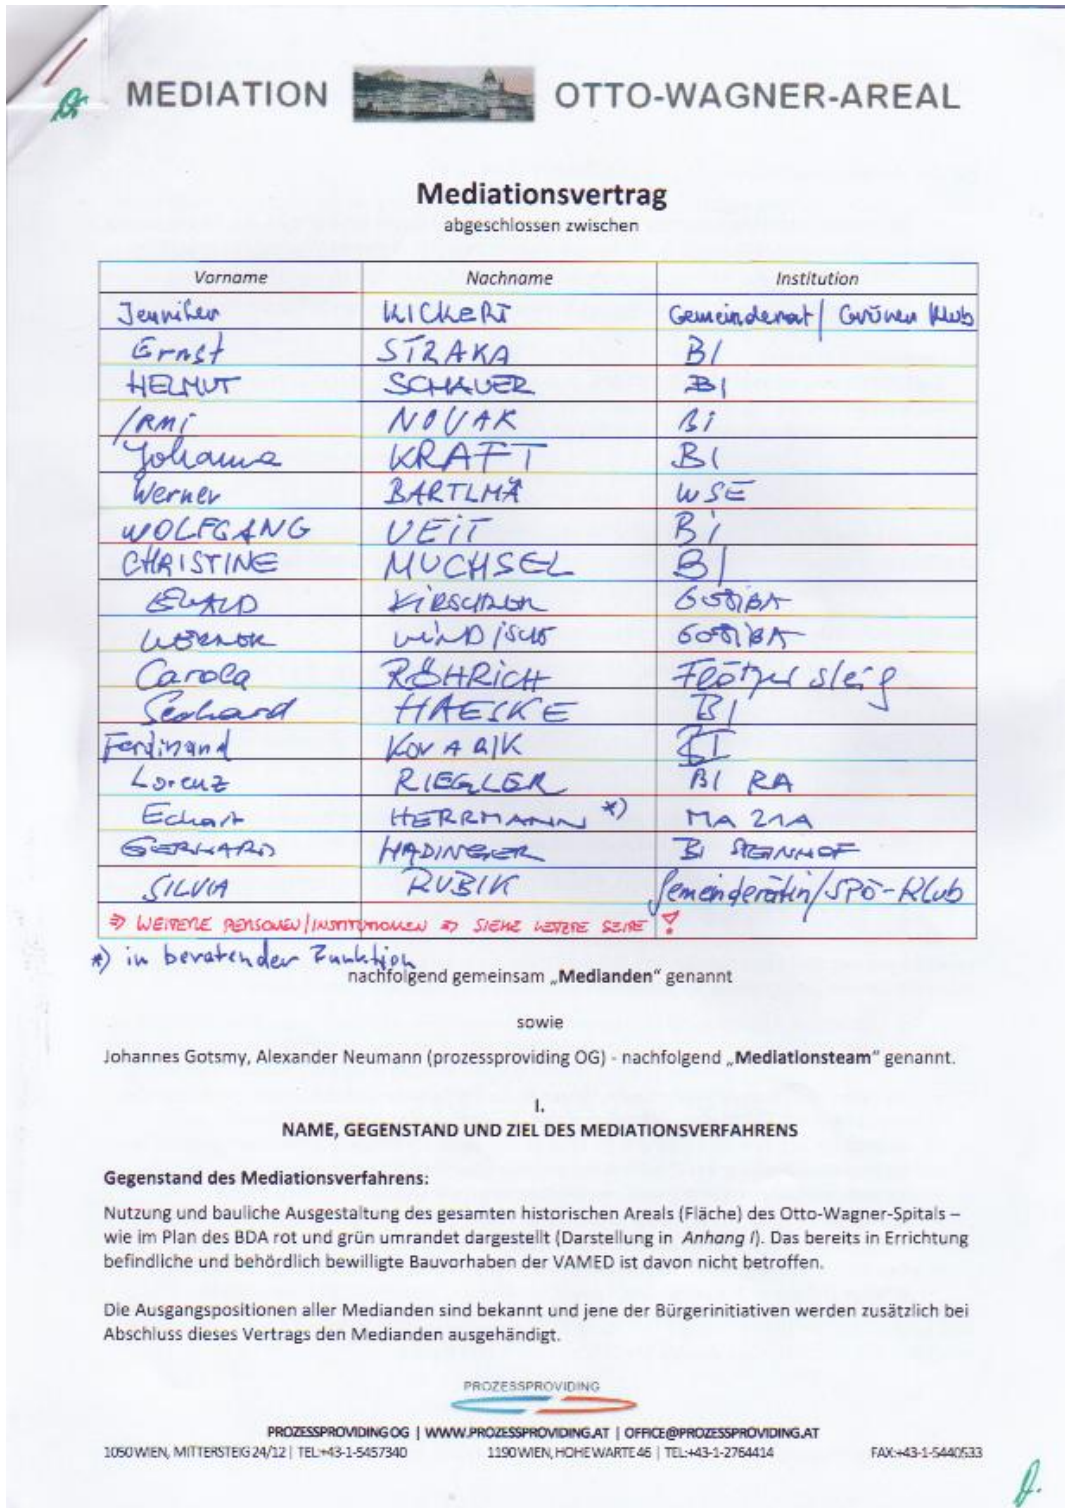 MEDIATION OTTO-WAGNER-AREAL
Mediationsvertrag
abgeschlossen zwischen
Vorname Nachname Institution
Jennifer KICKERT Gemeinderat / Grünen Klub
Ernst STRAKA BI
HELMUT SCHAUER BI
IRMi NOVAK Bi
Johanna KRAFT BI
Werner BARTLMÄ WSE
WOLFGANG VEiT Bi
CHRISTINE MUCHSEL BI
EWALD KIRSCHNER GESIBA
WERNER WINDISCH GESIBA
Carola RÖHRICH Flötzersteig
Gerhard HAESKE BI
Ferdinand KOVARIK BI
Lorenz RIEGLER BI RA
Eckart HERRMANN *) MA 21A
GERHARD HADINGER BI STEINHOF
SILVIA RUBIK Gemeinderätin/SPÖ-Klub
⇒ WEITERE PERSONEN/INSTITUTIONEN ⇒ SIEHE LETZTE SEITE!
*) in beratender Funktion
nachfolgend gemeinsam „Medianden“ genannt
sowie
Johannes Gotsmy, Alexander Neumann (prozessproviding OG) - nachfolgend „Mediationsteam“ genannt.
I.
NAME, GEGENSTAND UND ZIEL DES MEDIATIONSVERFAHRENS
Gegenstand des Mediationsverfahrens:
Nutzung und bauliche Ausgestaltung des gesamten historischen Areals (Fläche) des Otto-Wagner-Spitals –
wie im Plan des BDA rot und grün umrandet dargestellt (Darstellung in Anhang I). Das bereits in Errichtung
befindliche und behördlich bewilligte Bauvorhaben der VAMED ist davon nicht betroffen.
Die Ausgangspositionen aller Medianden sind bekannt und jene der Bürgerinitiativen werden zusätzlich bei
Abschluss dieses Vertrags den Medianden ausgehändigt.
PROZESSPROVIDING
PROZESSPROVIDING OG | WWW.PROZESSPROVIDING.AT | OFFICE@PROZESSPROVIDING.AT
1050 WIEN, MITTERSTEIG 24/12 | TEL:+43-1-5457340 1190 WIEN, HOHE WARTE 46 | TEL:+43-1-2764414 FAX:+43-1-5440533